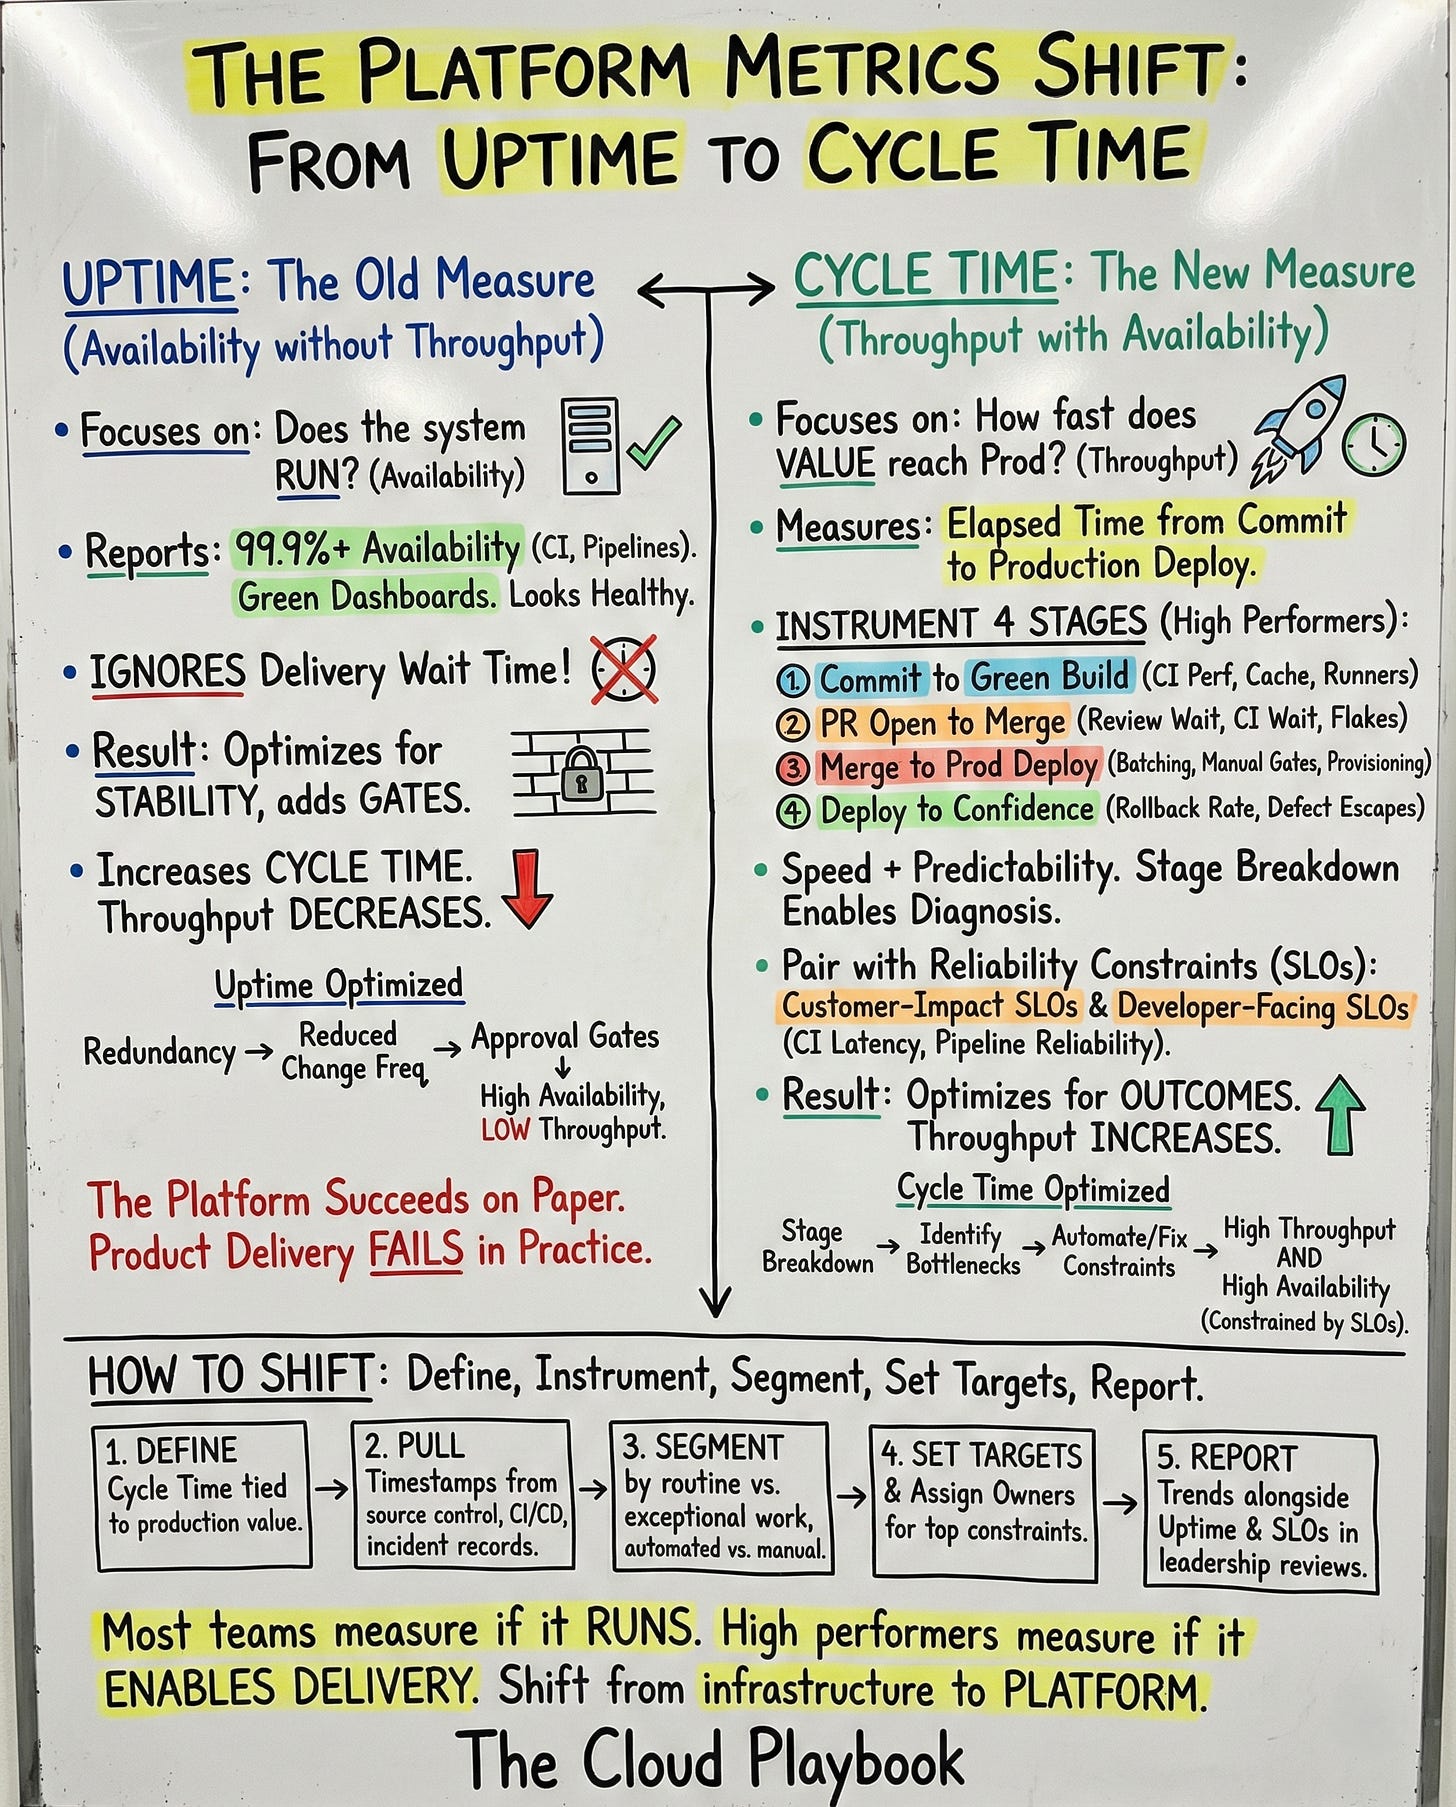 THE PLATFORM METRICS SHIFT:
FROM UPTIME TO CYCLE TIME
UPTIME: The Old Measure
(Availability without Throughput)
• Focuses on: Does the system
RUN? (Availability)
• Reports: 99.9%+ Availability (CI, Pipelines).
Green Dashboards. Looks Healthy.
• IGNORES Delivery Wait Time!
• Result: Optimizes for
STABILITY, adds GATES.
• Increases CYCLE TIME.
Throughput DECREASES.
Uptime Optimized
Redundancy → Reduced
Change Freq → Approval Gates
↓
High Availability,
LOW Throughput.
The Platform Succeeds on Paper.
Product Delivery FAILS in Practice.
CYCLE TIME: The New Measure
(Throughput with Availability)
• Focuses on: How fast does
VALUE reach Prod? (Throughput)
• Measures: Elapsed Time from Commit
to Production Deploy.
• INSTRUMENT 4 STAGES (High Performers):
1. Commit to Green Build (CI Perf, Cache, Runners)
2 PR Open to Merge (Review Wait, CI Wait, Flakes)
3. Merge to Prod Deploy (Batching, Manual Gates, Provisioning)
4 Deploy to Confidence (Rollback Rate, Defect Escapes)
• Speed + Predictability. Stage Breakdown
Enables Diagnosis.
• Pair with Reliability Constraints (SLOs):
Customer-Impact SLOs & Developer-Facing SLOs
(CI Latency, Pipeline Reliability).
• Result: Optimizes for OUTCOMES.
Throughput INCREASES.
Cycle Time Optimized
Stage
Breakdown → Identify
Bottlenecks → Automate/Fix
Constraints → High Throughput
AND
High Availability
(Constrained by SLOs).
HOW TO SHIFT: Define, Instrument, Segment, Set Targets, Report.
1. DEFINE
Cycle Time tied
to production value.
→
2. PULL
Timestamps from
source control, CI/CD,
incident records.
→
3. SEGMENT
by routine vs.
exceptional work,
automated vs. manual.
→
4. SET TARGETS
& Assign Owners
for top constraints.
→
5. REPORT
Trends alongside
Uptime & SLOs in
leadership reviews.
Most teams measure if it RUNS. High performers measure if it
ENABLES DELIVERY. Shift from infrastructure to PLATFORM.
The Cloud Playbook